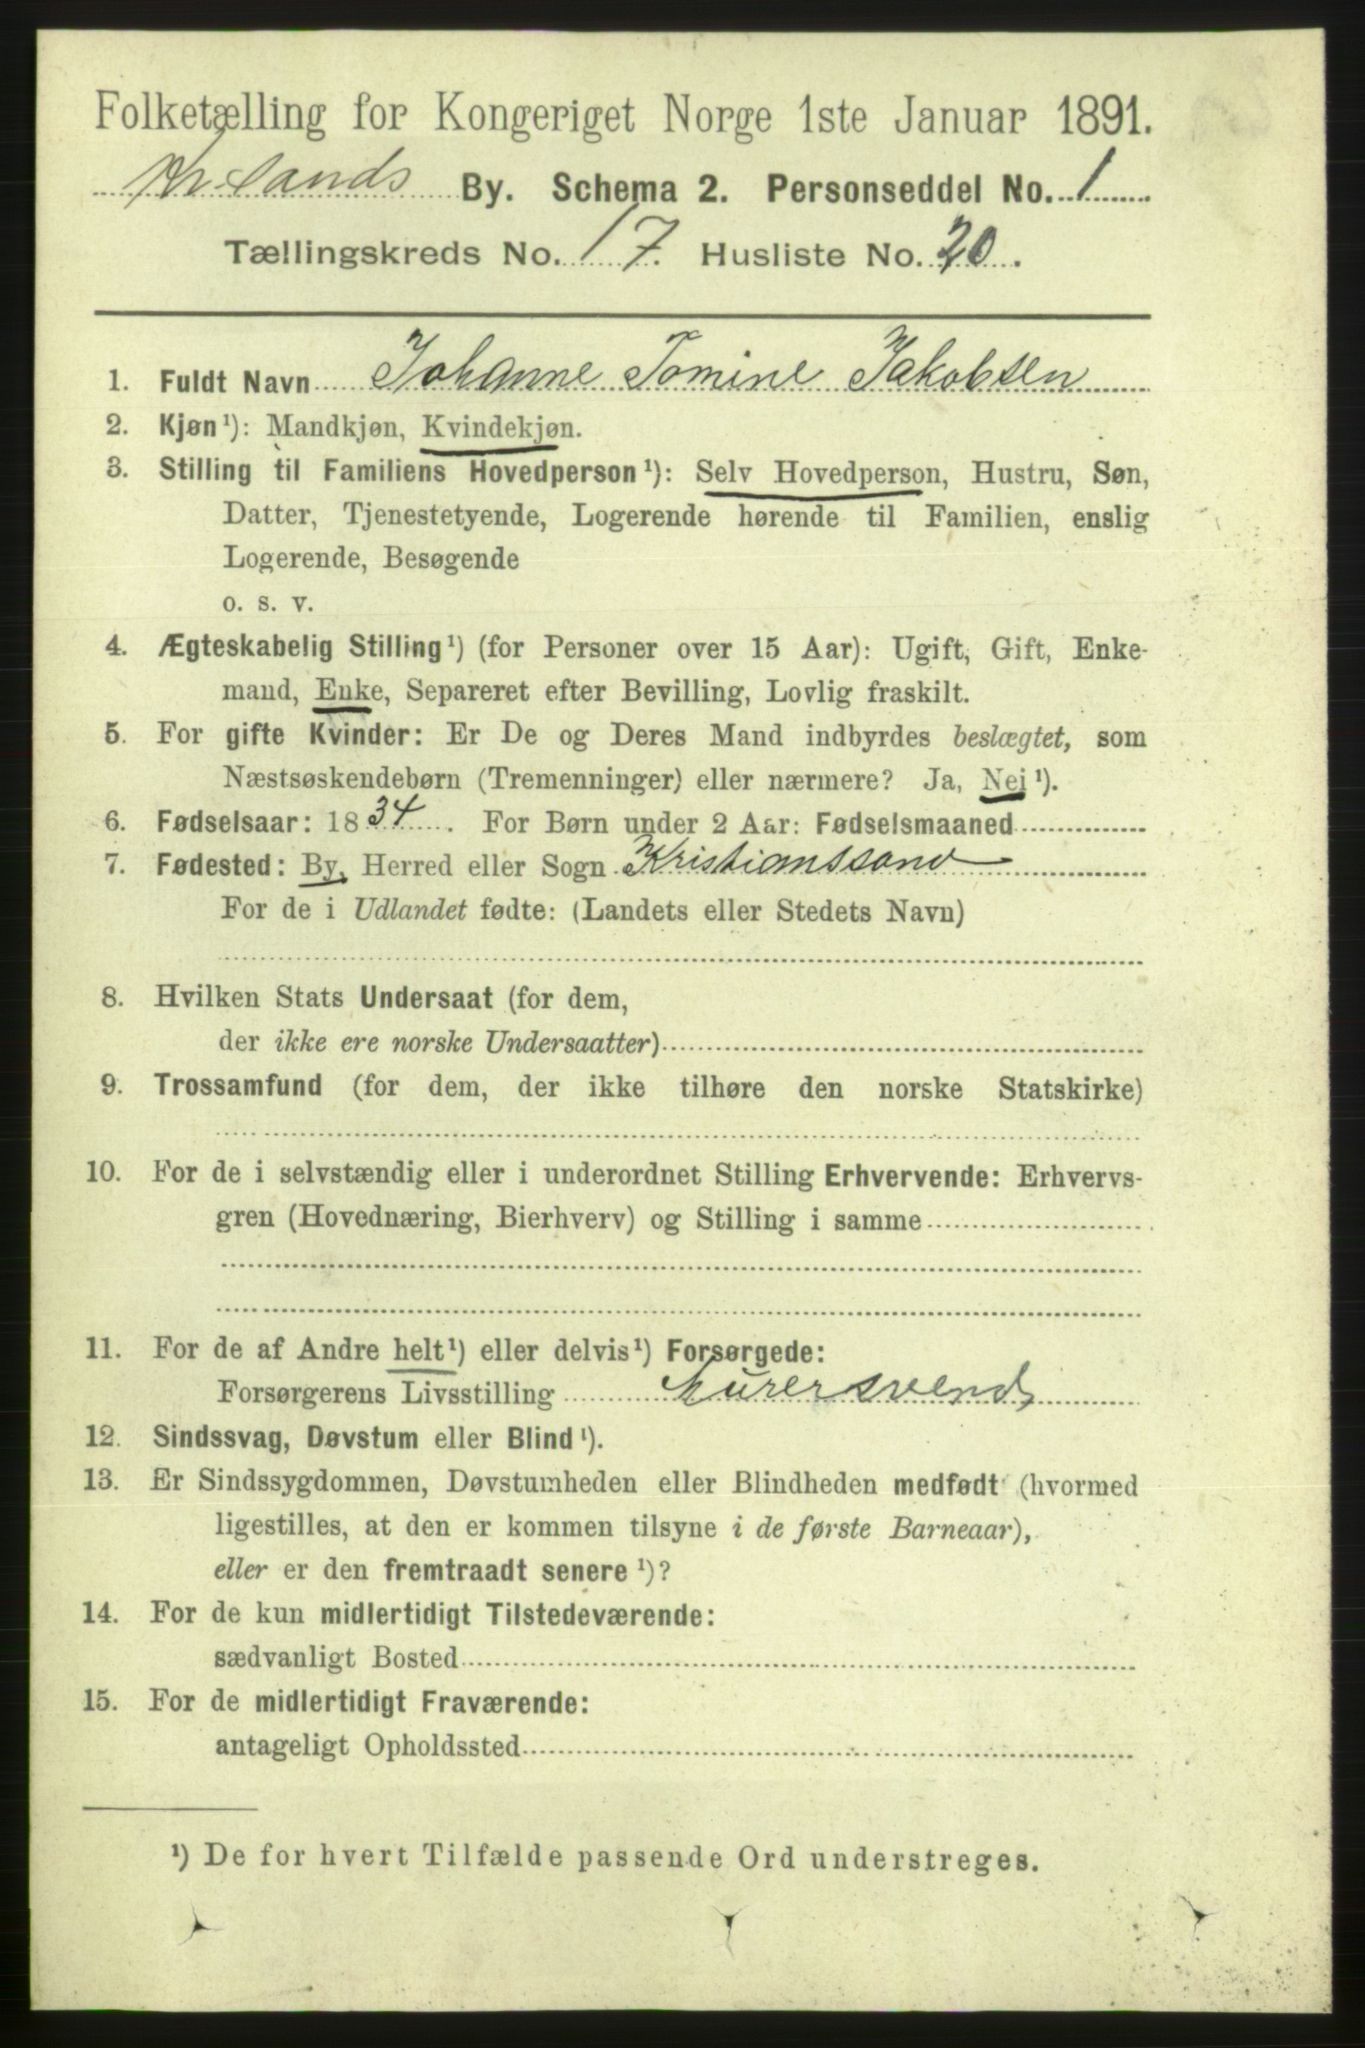 Folketælling for Kongeriget Norge 1ste Januar 1891.
Kr.sands By. Schema 2. Personseddel No. 1
Tællingskreds No. 17. Husliste No. 20.
1. Fuldt Navn Johanne Tomine Jakobsen
2. Kjøn¹): Mandkjøn, Kvindekjøn.
3. Stilling til Familiens Hovedperson¹): Selv Hovedperson, Hustru, Søn,
Datter, Tjenestetyende, Logerende hørende til Familien, enslig
Logerende, Besøgende
o. s. v.
4. Ægteskabelig Stilling¹) (for Personer over 15 Aar): Ugift, Gift, Enke-
mand, Enke, Separeret efter Bevilling, Lovlig fraskilt.
5. For gifte Kvinder: Er De og Deres Mand indbyrdes beslægtet, som
Næstsøskendebørn (Tremenninger) eller nærmere? Ja, Nei¹).
6. Fødselsaar: 1834. For Børn under 2 Aar: Fødselsmaaned
7. Fødested: By, Herred eller Sogn Kristianssand
For de i Udlandet fødte: (Landets eller Stedets Navn)
8. Hvilken Stats Undersaat (for dem,
der ikke ere norske Undersaatter)
9. Trossamfund (for dem, der ikke tilhøre den norske Statskirke)
10. For de i selvstændig eller i underordnet Stilling Erhvervende: Erhvervs-
gren (Hovednæring, Bierhverv) og Stilling i samme
11. For de af Andre helt¹) eller delvis¹) Forsørgede:
Forsørgerens Livsstilling Murersvend
12. Sindssvag, Døvstum eller Blind¹).
13. Er Sindssygdommen, Døvstumheden eller Blindheden medfødt (hvormed
ligestilles, at den er kommen tilsyne i de første Barneaar),
eller er den fremtraadt senere¹)?
14. For de kun midlertidigt Tilstedeværende:
sædvanligt Bosted
15. For de midlertidigt Fraværende:
antageligt Opholdssted
¹) De for hvert Tilfælde passende Ord understreges.